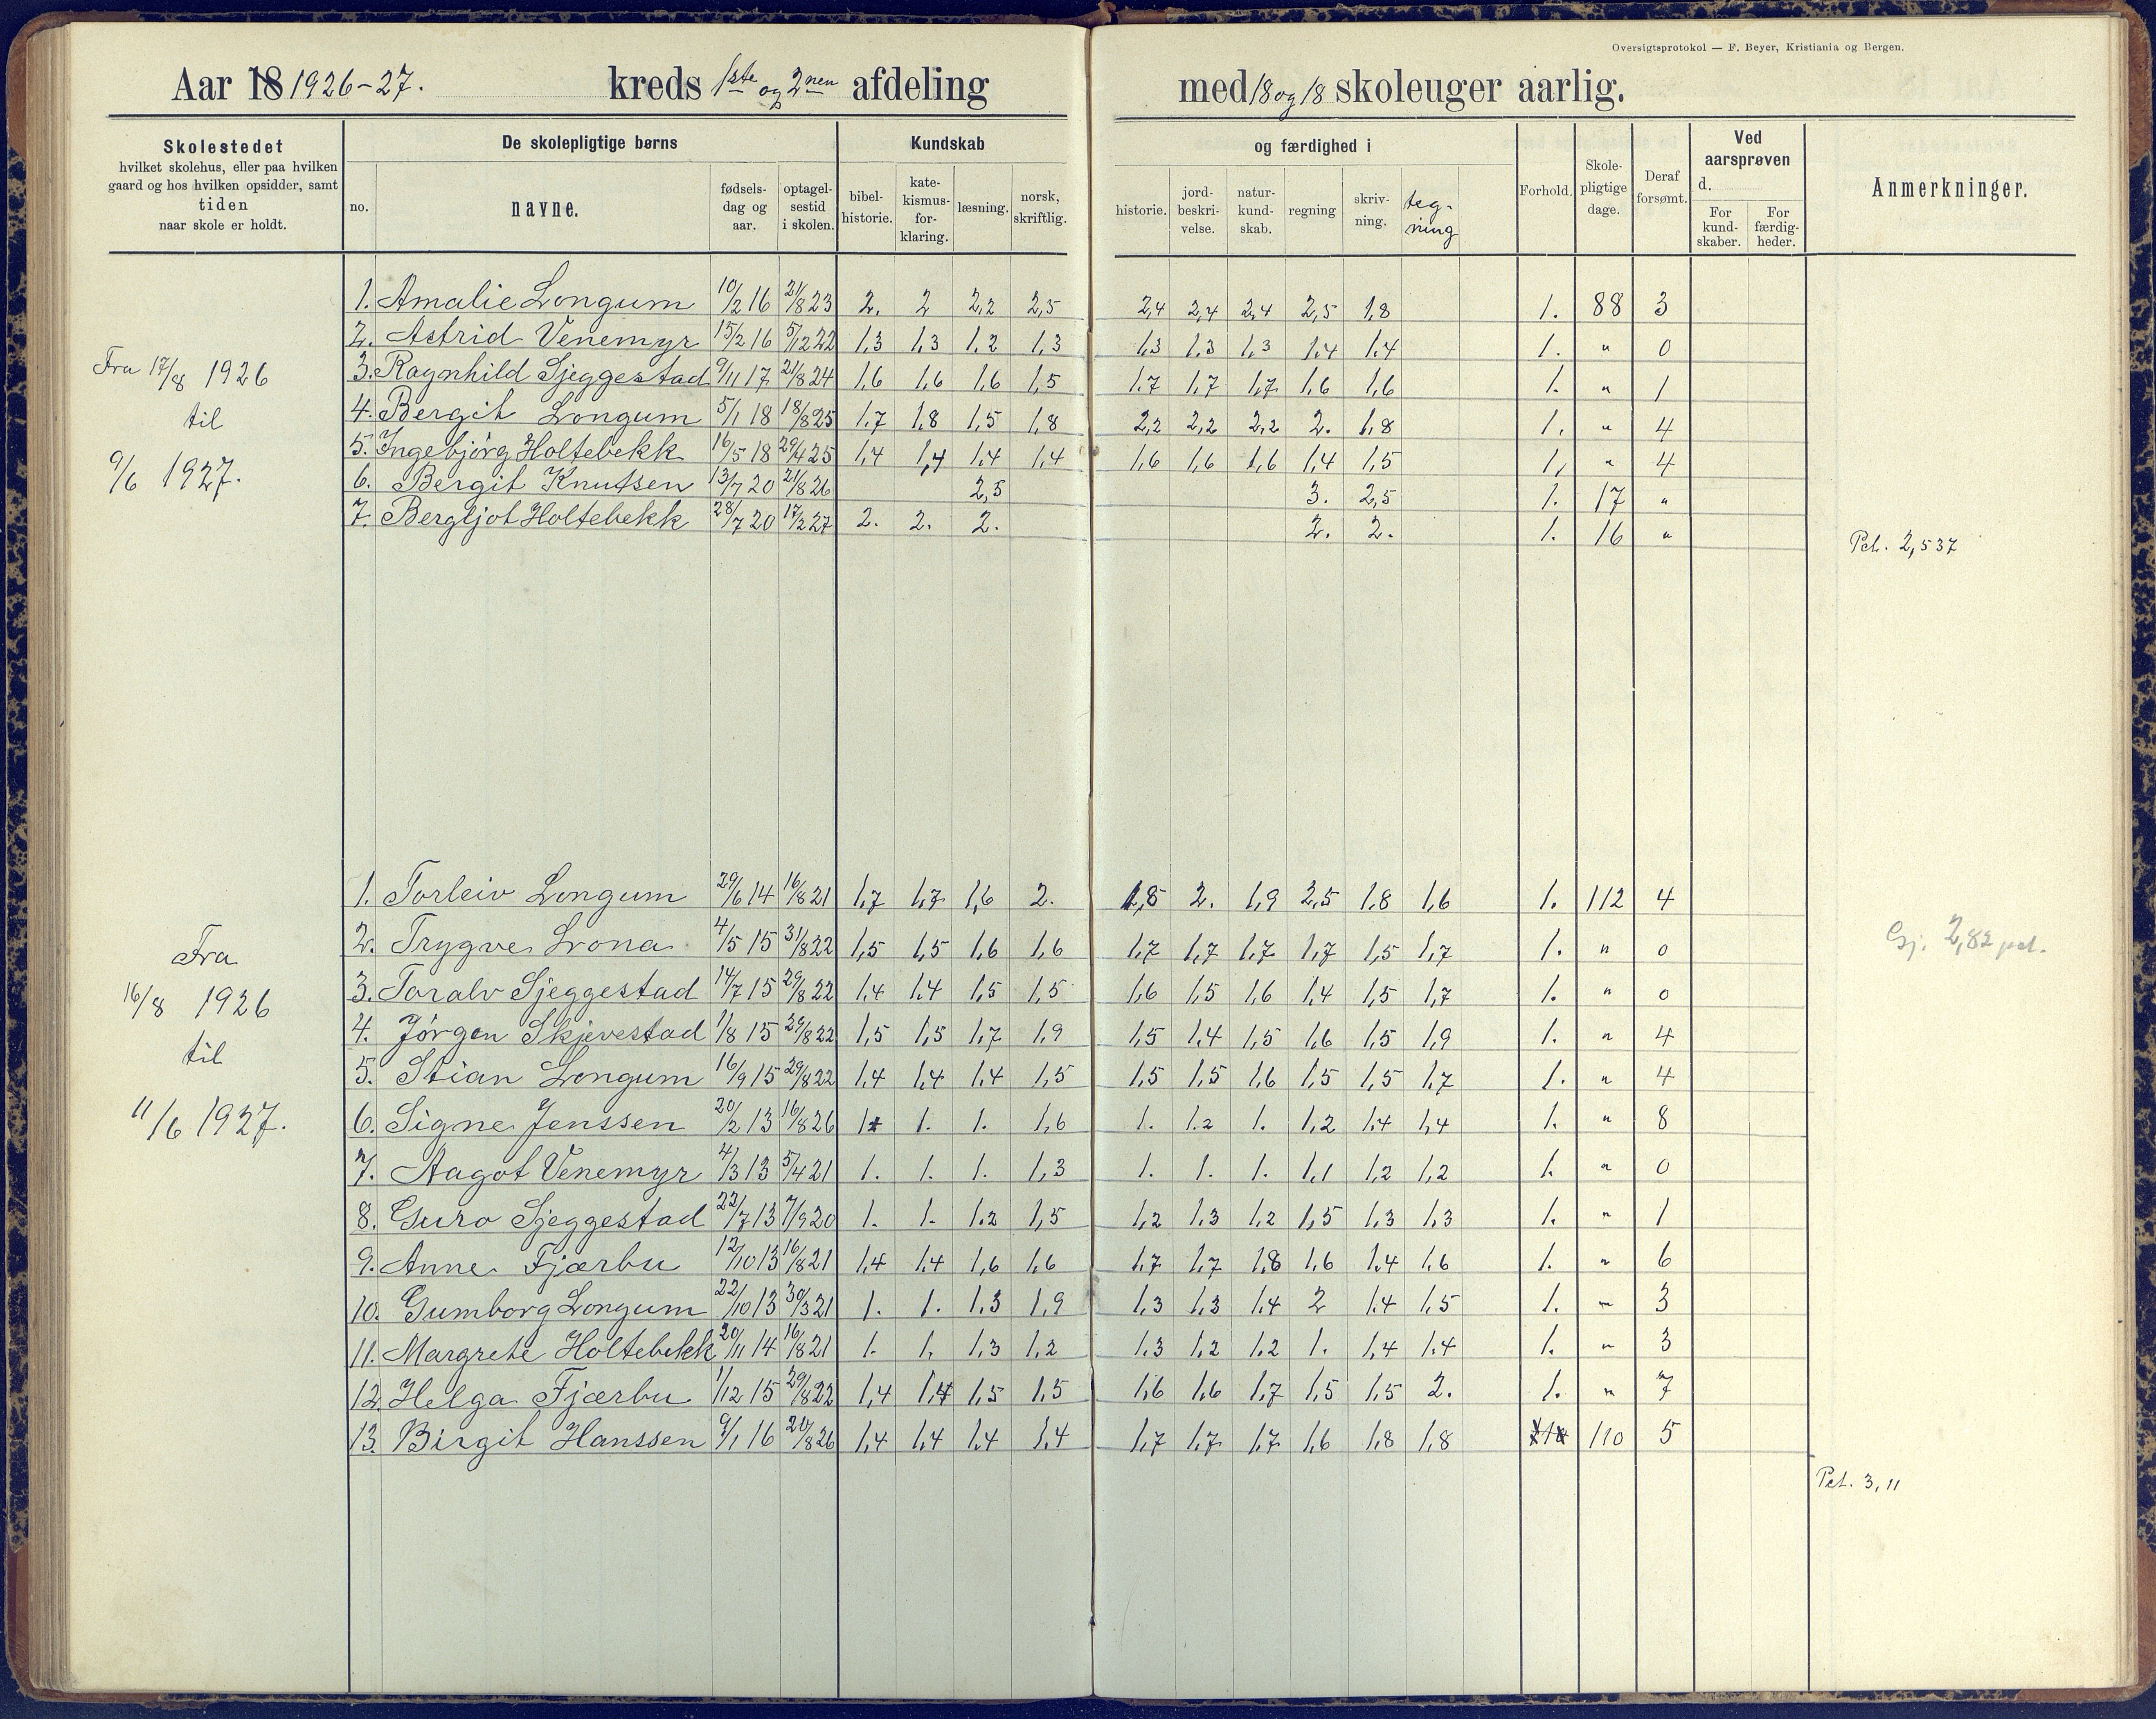 Oversigtsprotokol — F. Beyer, Kristiania og Bergen.
Aar 18 1926-27. kreds 1ste og 2nen afdeling med 18 og 18 skoleuger aarlig.
Skolestedet hvilket skolehus, eller paa hvilken gaard og hos hvilken opsidder, samt tiden naar skole er holdt.
De skolepligtige børns
no. navne. fødsels-dag og aar. optagel-sestid i skolen.
Kundskab og færdighed i
bibel-historie. kate-kismus-for-klaring. læsning. norsk, skriftlig. historie. jord-beskri-velse. natur-kund-skab. regning skriv-ning. teg-ning
Forhold. Skole-pligtige dage. Deraf forsømt.
Ved aarsprøven d. For kund-skaber. For færdig-heder.
Anmerkninger.
Fra 17/8 1926
til
9/6 1927.
1. Amalie Longum 10/2 16 21/8 23 2. 2 2,2 2,5 2,4 2,4 2,4 2,5 1,8 1. 88 3
2. Astrid Venemyr 15/2 16 5/12 22 1,3 1,3 1,2 1,3 1,3 1,3 1,3 1,4 1,4 1. " 0
3. Ragnhild Sjeggestad 9/11 17 21/8 24 1,6 1,6 1,6 1,5 1,7 1,7 1,7 1,6 1,6 1. " 1
4. Bergit Longum 5/1 18 18/8 25 1,7 1,8 1,5 1,8 2,2 2,2 2,2 2. 1,8 1. " 4
5. Ingebjørg Holtebekk 16/5 18 29/4 25 1,4 1,4 1,4 1,4 1,6 1,6 1,6 1,4 1,5 1, " 4
6. Bergit Knutsen 13/7 20 21/8 26 2,5 3. 2,5 1. 17 "
7. Bergljot Holtebekk 28/7 20 17/2 27 2. 2. 2. 2. 2. 1. 16 "
Pct. 2,537
Fra
16/8 1926
til
11/6 1927.
1. Torleiv Longum 29/6 14 16/8 21 1,7 1,7 1,6 2. 1,8 2. 1,9 2,5 1,8 1,6 1. 112 4
2. Trygve Lona 4/5 15 31/8 22 1,5 1,5 1,6 1,6 1,7 1,7 1,7 1,7 1,5 1,7 1. " 0
Gj. 2,82 pct.
3. Toralv Sjeggestad 14/7 15 29/8 22 1,4 1,4 1,5 1,5 1,6 1,5 1,6 1,4 1,5 1,7 1. " 0
4. Jørgen Skjevestad 1/8 15 29/8 22 1,5 1,5 1,7 1,9 1,5 1,4 1,5 1,6 1,5 1,9 1. " 4
5. Stian Longum 16/9 15 29/8 22 1,4 1,4 1,4 1,5 1,5 1,5 1,6 1,5 1,5 1,7 1. " 4
6. Signe Jenssen 20/2 13 16/8 26 1. 1. 1. 1,6 1. 1.2 1. 1,2 1.4 1,4 1. " 8
7. Aagot Venemyr 4/3 13 5/4 21 1. 1. 1. 1,3 1. 1. 1. 1,1 1,2 1,2 1. " 0
8. Guro Sjeggestad 22/7 13 7/9 20 1. 1. 1.2 1,5 1,2 1.3 1,2 1,5 1.3 1.3 1. " 1
9. Anne Fjærbu 12/10 13 16/8 21 1,4 1,4 1,6 1,6 1,7 1,7 1,8 1,6 1.4 1,6 1. " 6
10. Gumborg Longum 22/10 13 30/3 21 1. 1. 1.3 1,9 1,3 1,3 1,4 2 1.4 1,5 1. " 3
11. Margrete Holtebekk 20/11 14 16/8 21 1. 1, 1,3 1,2 1.3 1,2 1.2 1. 1,4 1.4 1. " 3
12. Helga Fjærbu 1/12 15 29/8 22 1,4 1,4 1,5 1,5 1,6 1,6 1,7 1,5 1,5 2. 1. " 7
13. Birgit Hanssen 9/1 16 20/8 26 1,4 1,4 1,4 1,4 1,7 1,7 1,7 1,6 1,8 1,8 110 5
Pct. 3,11